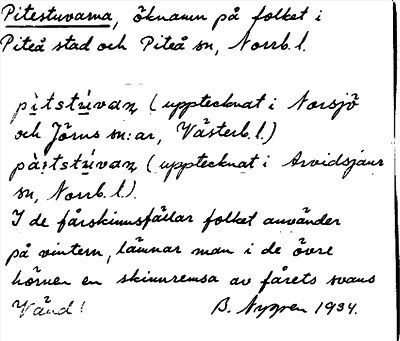 Pitestuvarna, öknamn på folket i
Piteå stad och Piteå sn, Norrb. l.
pìtstúvaṇ (upptecknat i Norsjö
och Jörns sn:ar, Västerb. l.)
pàitstúvaṇ (upptecknat i Arvidsjaur
sn, Norrb. l.).
I de fårskinnsfällar folket använder
på vintern, lämnar man i de övre
hörnen en skinnremsa av fårets svans
Vänd! B. Nygren 1934.